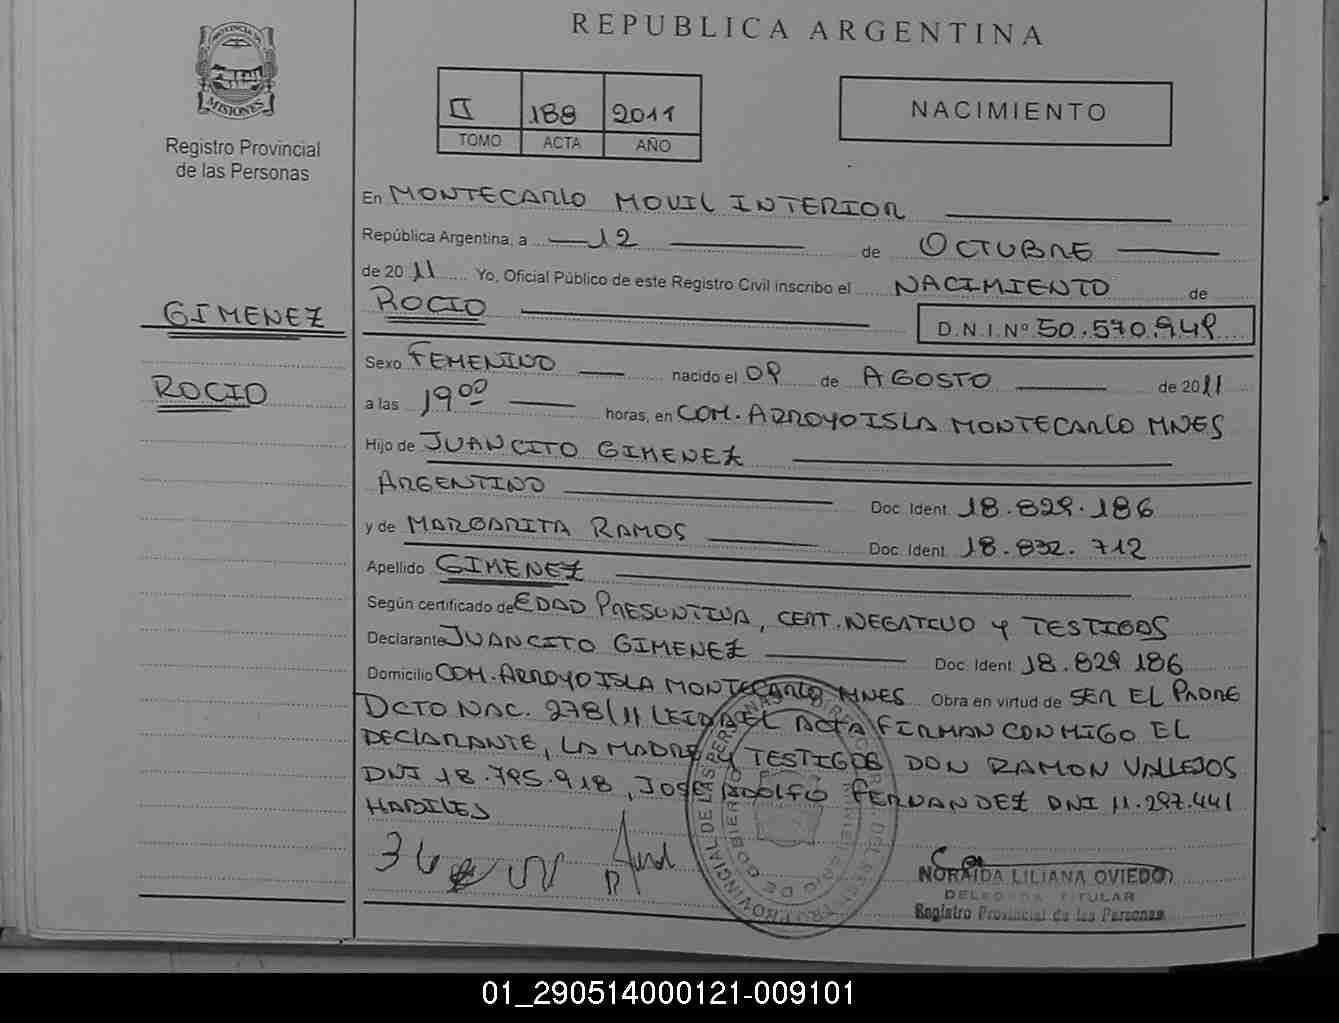 REPUBLICA ARGENTINA
PROVINCIA DE
MISIONES
Registro Provincial
de las Personas
II 188 2011
TOMO ACTA AÑO
NACIMIENTO
En MONTECARLO MOVIL INTERIOR
República Argentina, a 12 de OCTUBRE
de 2011 Yo, Oficial Público de este Registro Civil inscribo el NACIMIENTO de
GIMENEZ
ROCIO
ROCIO
D.N.I.Nº 50.570.949
Sexo FEMENINO nacido el 09 de AGOSTO de 2011
a las 19 00 horas, en COM. ARROYO ISLA MONTECARLO MNES
Hijo de JUANCITO GIMENEZ
ARGENTINO Doc. Ident. 18.829.186
y de MARGARITA RAMOS Doc. Ident. 18.832.712
Apellido GIMENEZ
Según certificado de EDAD PRESUNTIVA, CERT. NEGATIVO Y TESTIGOS
Declarante JUANCITO GIMENEZ Doc. Ident. 18.829 186
Domicilio COM. ARROYO ISLA MONTECARLO MNES Obra en virtud de SER EL PADRE
DCTO NAC. 278/11 LEIDA EL ACTA FIRMAN CONMIGO EL
DECLARANTE, LA MADRE Y TESTIGOS DON RAMON VALLEJOS
DNI 18.795.918, JOSE RODOLFO FERNANDEZ DNI 11.297.441
HABILES
NORAIDA LILIANA OVIEDO
DELEGADA TITULAR
Registro Provincial de las Personas
01_290514000121-009101